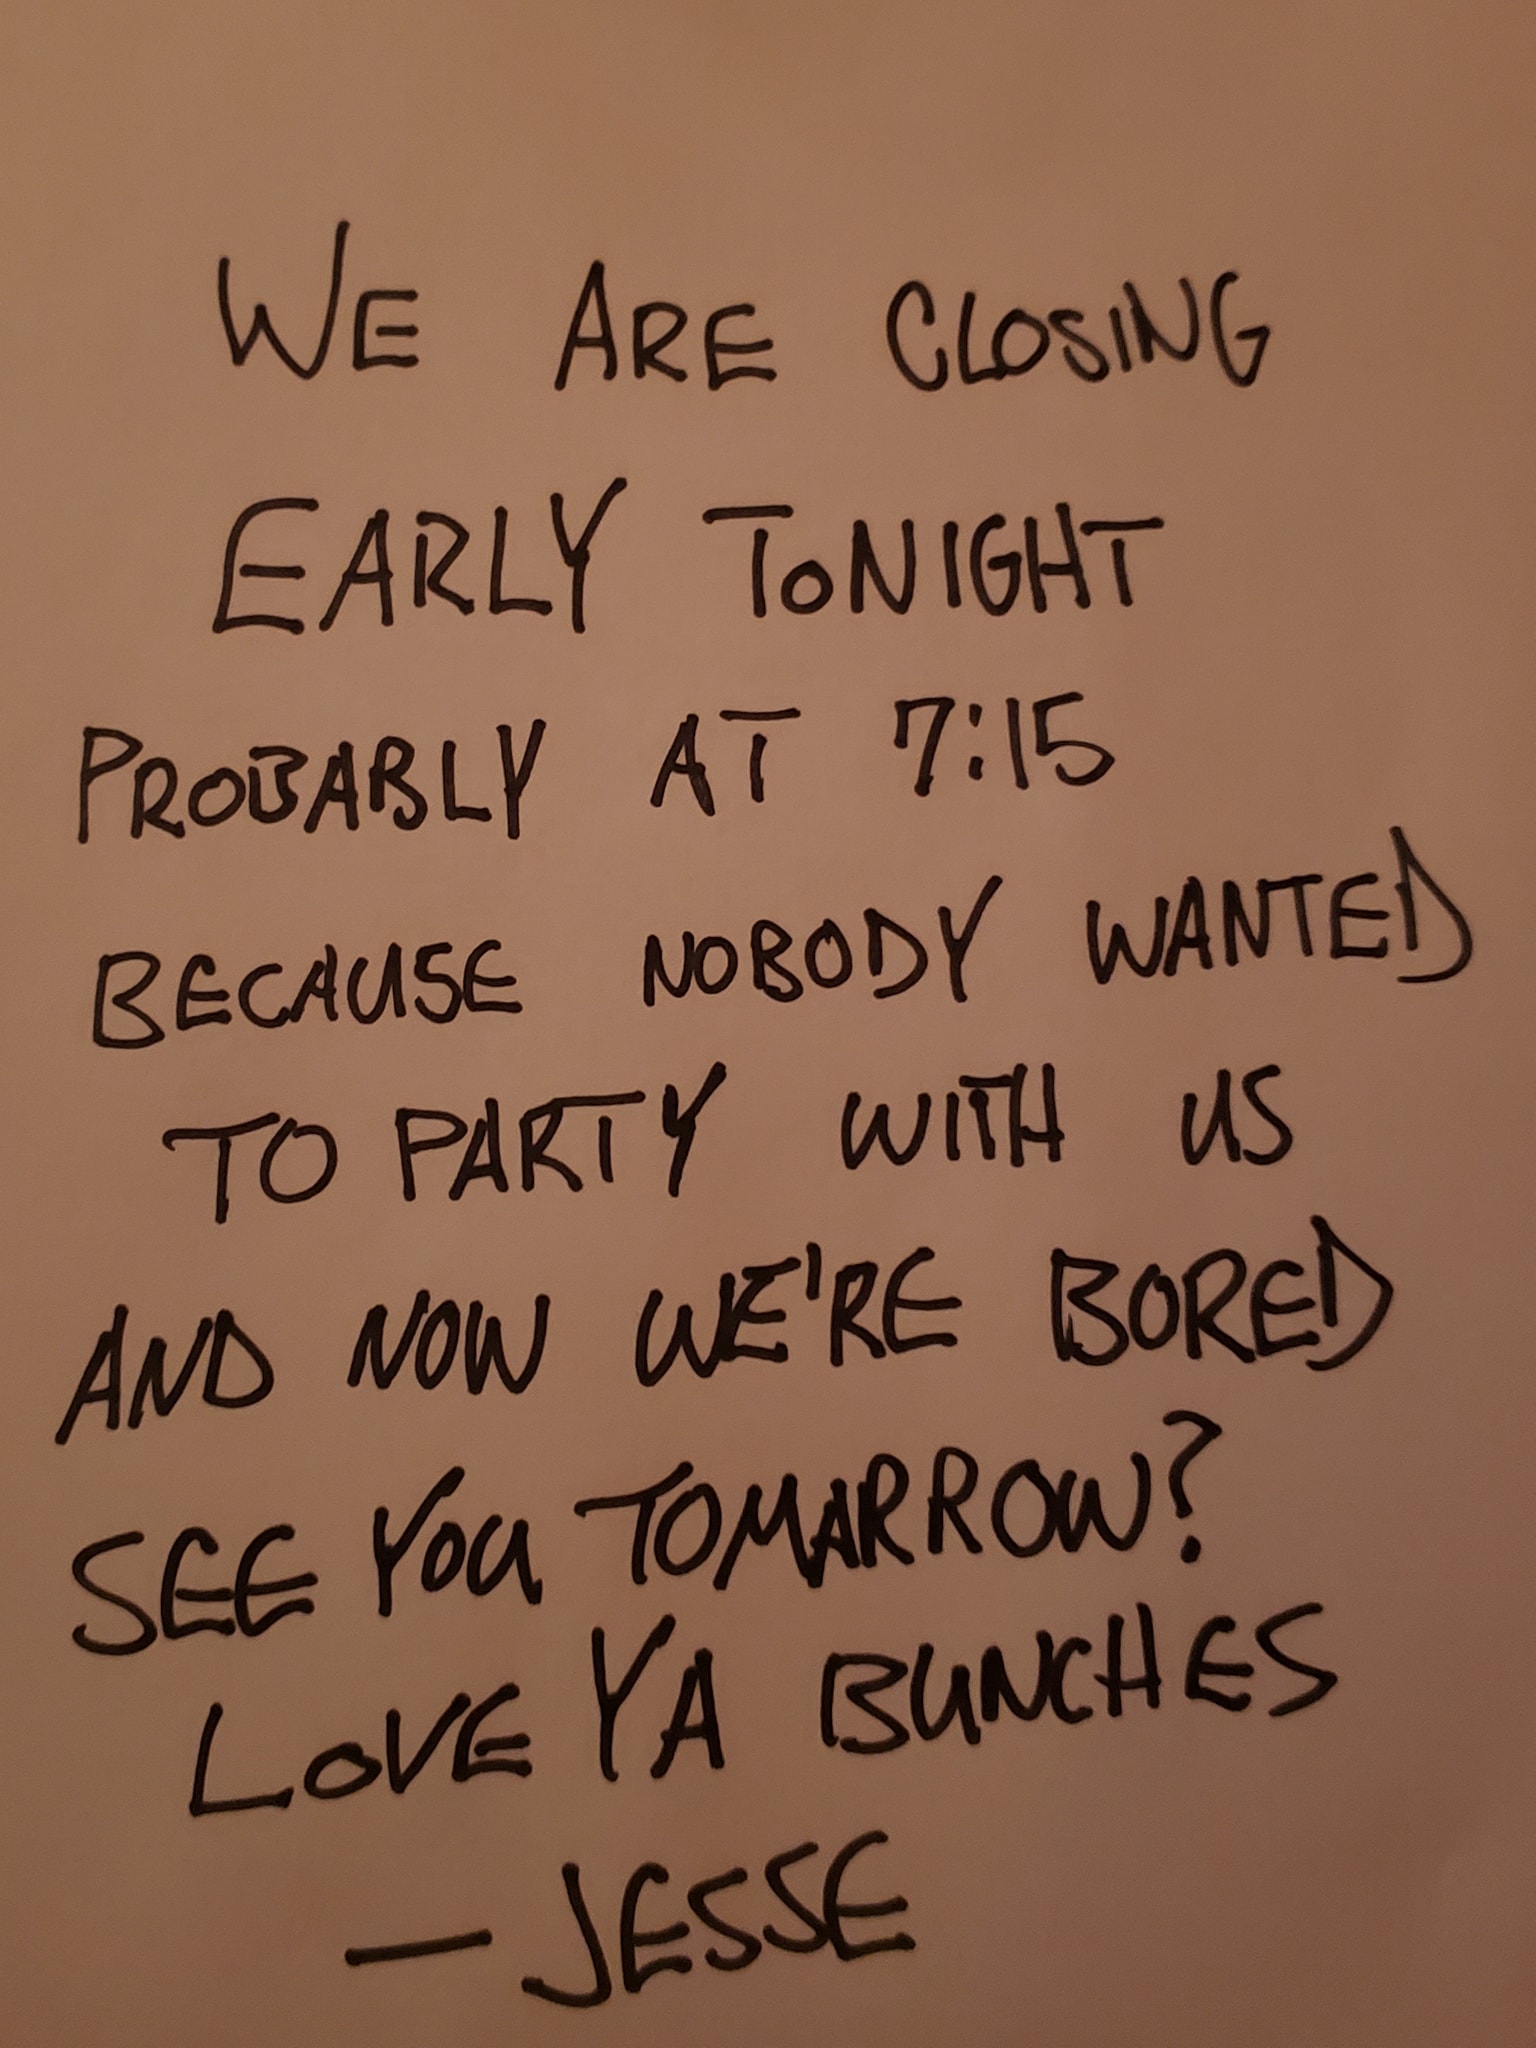 WE ARE CLOSING
EARLY TONIGHT
PROBABLY AT 7:15
BECAUSE NOBODY WANTED
TO PARTY WITH US
AND NOW WE'RE BORED
SEE YOU TOMARROW?
LOVE YA BUNCHES
— JESSE